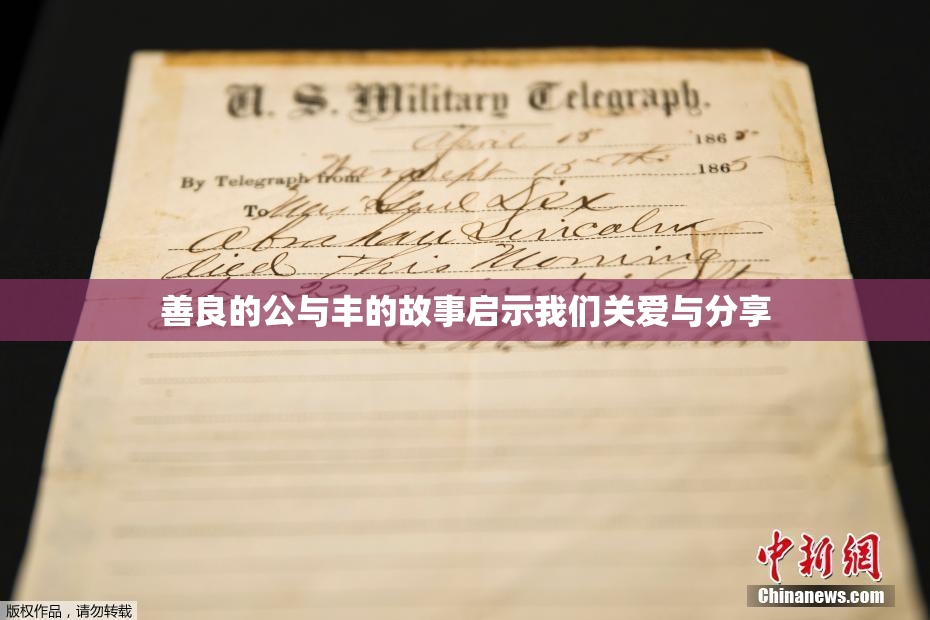 U. S. Military Telegraph.
April 15 1865
By Telegraph from War Dept 15th 1865
To Maj Genl Dix
Abraham Lincoln
died This Morning
at 22 minutes after
善良的公与丰的故事启示我们关爱与分享
E. M. Stanton
中新網
Chinanews.com
版权作品，请勿转载